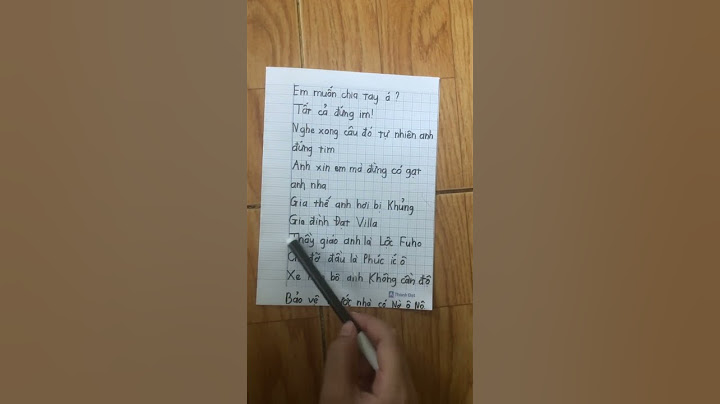 Em muốn chia tay á ?
Tất cả đứng im!
Nghe xong câu đó tự nhiên anh
đứng tim
Anh xin em mà đừng có gạt
anh nha
Gia thế anh hơi bị Khủng
Gia đình Đạt Villa
Thầy giáo anh là Lộc Fuho
đỡ đầu là Phúc íc ô
Xe bô anh Không cần đô
Thành Đạt
Bảo vệ nhà có Nờ Ô Nô